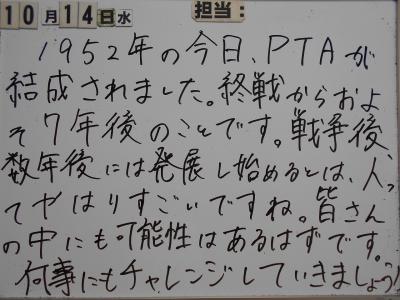 10月14日水 担当:
1952年の今日、PTAが
結成されました。終戦からおよ
そ7年後のことです。戦争後
数年後には発展し始めるとは、人っ
てやはりすごいですね。皆さん
の中にも可能性はあるはずです。
何事にもチャレンジしていきましょう!